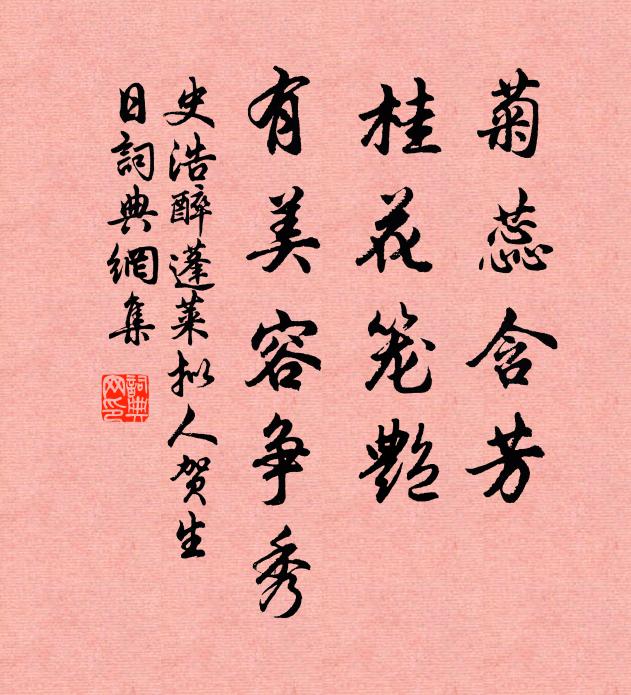 菊蕊含芳
桂花笼艷
有美容争秀
史浩醉蓬莱拟人贺生
日詞典網集
詞典
网印